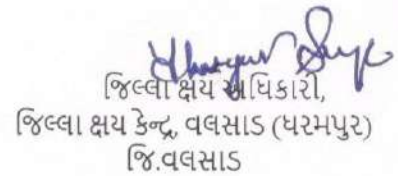 જિલ્લા ક્ષય અધિકારી,
જિલ્લા ક્ષય કેન્દ્ર, વલસાડ (ધરમપુર)
જિ.વલસાડ